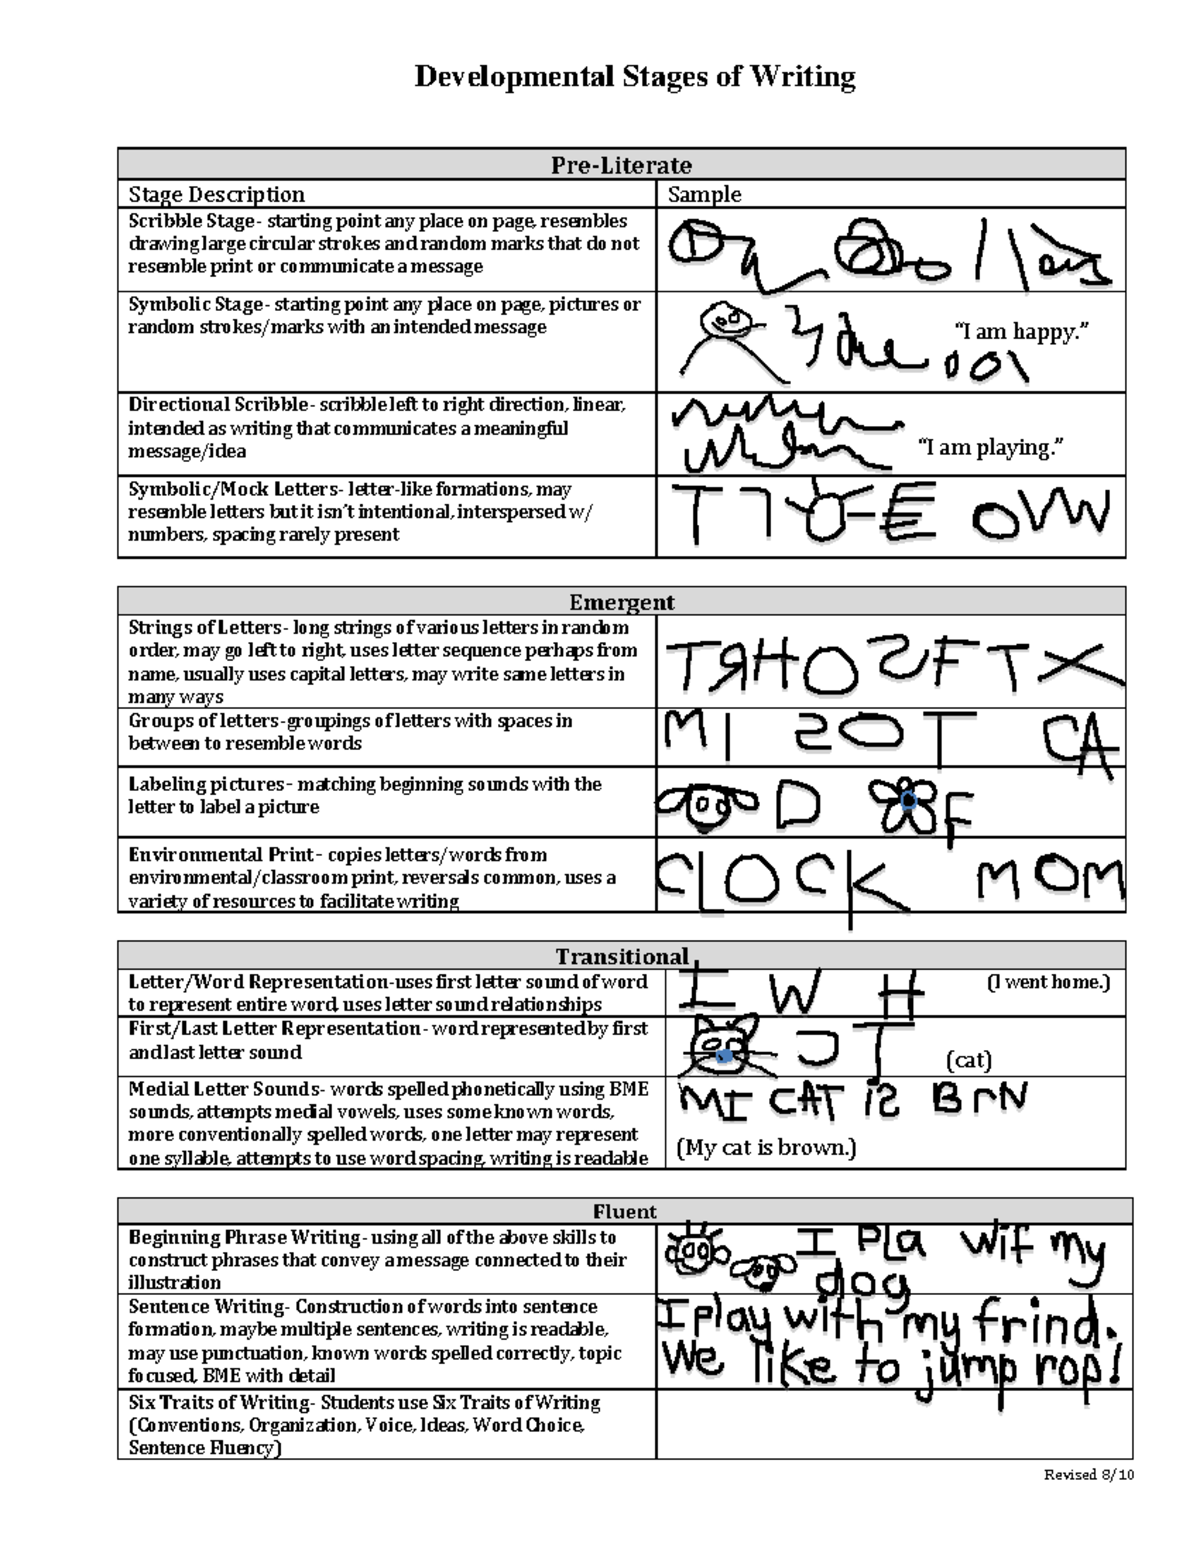 Developmental Stages of Writing
Pre-Literate
Stage Description
Sample
Scribble Stage- starting point any place on page, resembles
drawing large circular strokes and random marks that do not
resemble print or communicate a message
Symbolic Stage- starting point any place on page, pictures or
random strokes/marks with an intended message
"I am happy."
Directional Scribble- scribble left to right direction, linear,
intended as writing that communicates a meaningful
message/idea
"I am playing."
Symbolic/Mock Letters- letter-like formations, may
resemble letters but it isn't intentional, interspersed w/
numbers, spacing rarely present
Emergent
Strings of Letters- long strings of various letters in random
order, may go left to right, uses letter sequence perhaps from
name, usually uses capital letters, may write same letters in
many ways
TRHOSFTX
Groups of letters-groupings of letters with spaces in
between to resemble words
MI SOT CA
Labeling pictures- matching beginning sounds with the
letter to label a picture
D F
Environmental Print- copies letters/words from
environmental/classroom print, reversals common, uses a
variety of resources to facilitate writing
CLOCK MOM
Transitional
Letter/Word Representation-uses first letter sound of word
to represent entire word, uses letter sound relationships
I W H (I went home.)
First/Last Letter Representation- word represented by first
and last letter sound
(cat)
Medial Letter Sounds- words spelled phonetically using BME
sounds, attempts medial vowels, uses some known words,
more conventionally spelled words, one letter may represent
one syllable, attempts to use word spacing, writing is readable
MI CAT iS BrN
(My cat is brown.)
Fluent
Beginning Phrase Writing- using all of the above skills to
construct phrases that convey a message connected to their
illustration
I Pla wif my
dog
Sentence Writing- Construction of words into sentence
formation, maybe multiple sentences, writing is readable,
may use punctuation, known words spelled correctly, topic
focused, BME with detail
I play with my frind.
We like to jump rop!
Six Traits of Writing- Students use Six Traits of Writing
(Conventions, Organization, Voice, Ideas, Word Choice,
Sentence Fluency)
Revised 8/10